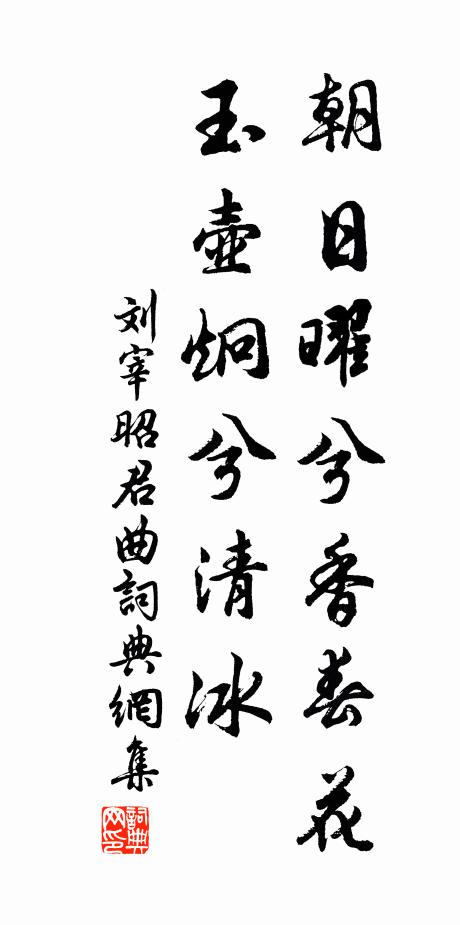 朝日曜兮香春花
玉壺炯兮清冰
刘宰昭君曲詞典網集
詞典网印